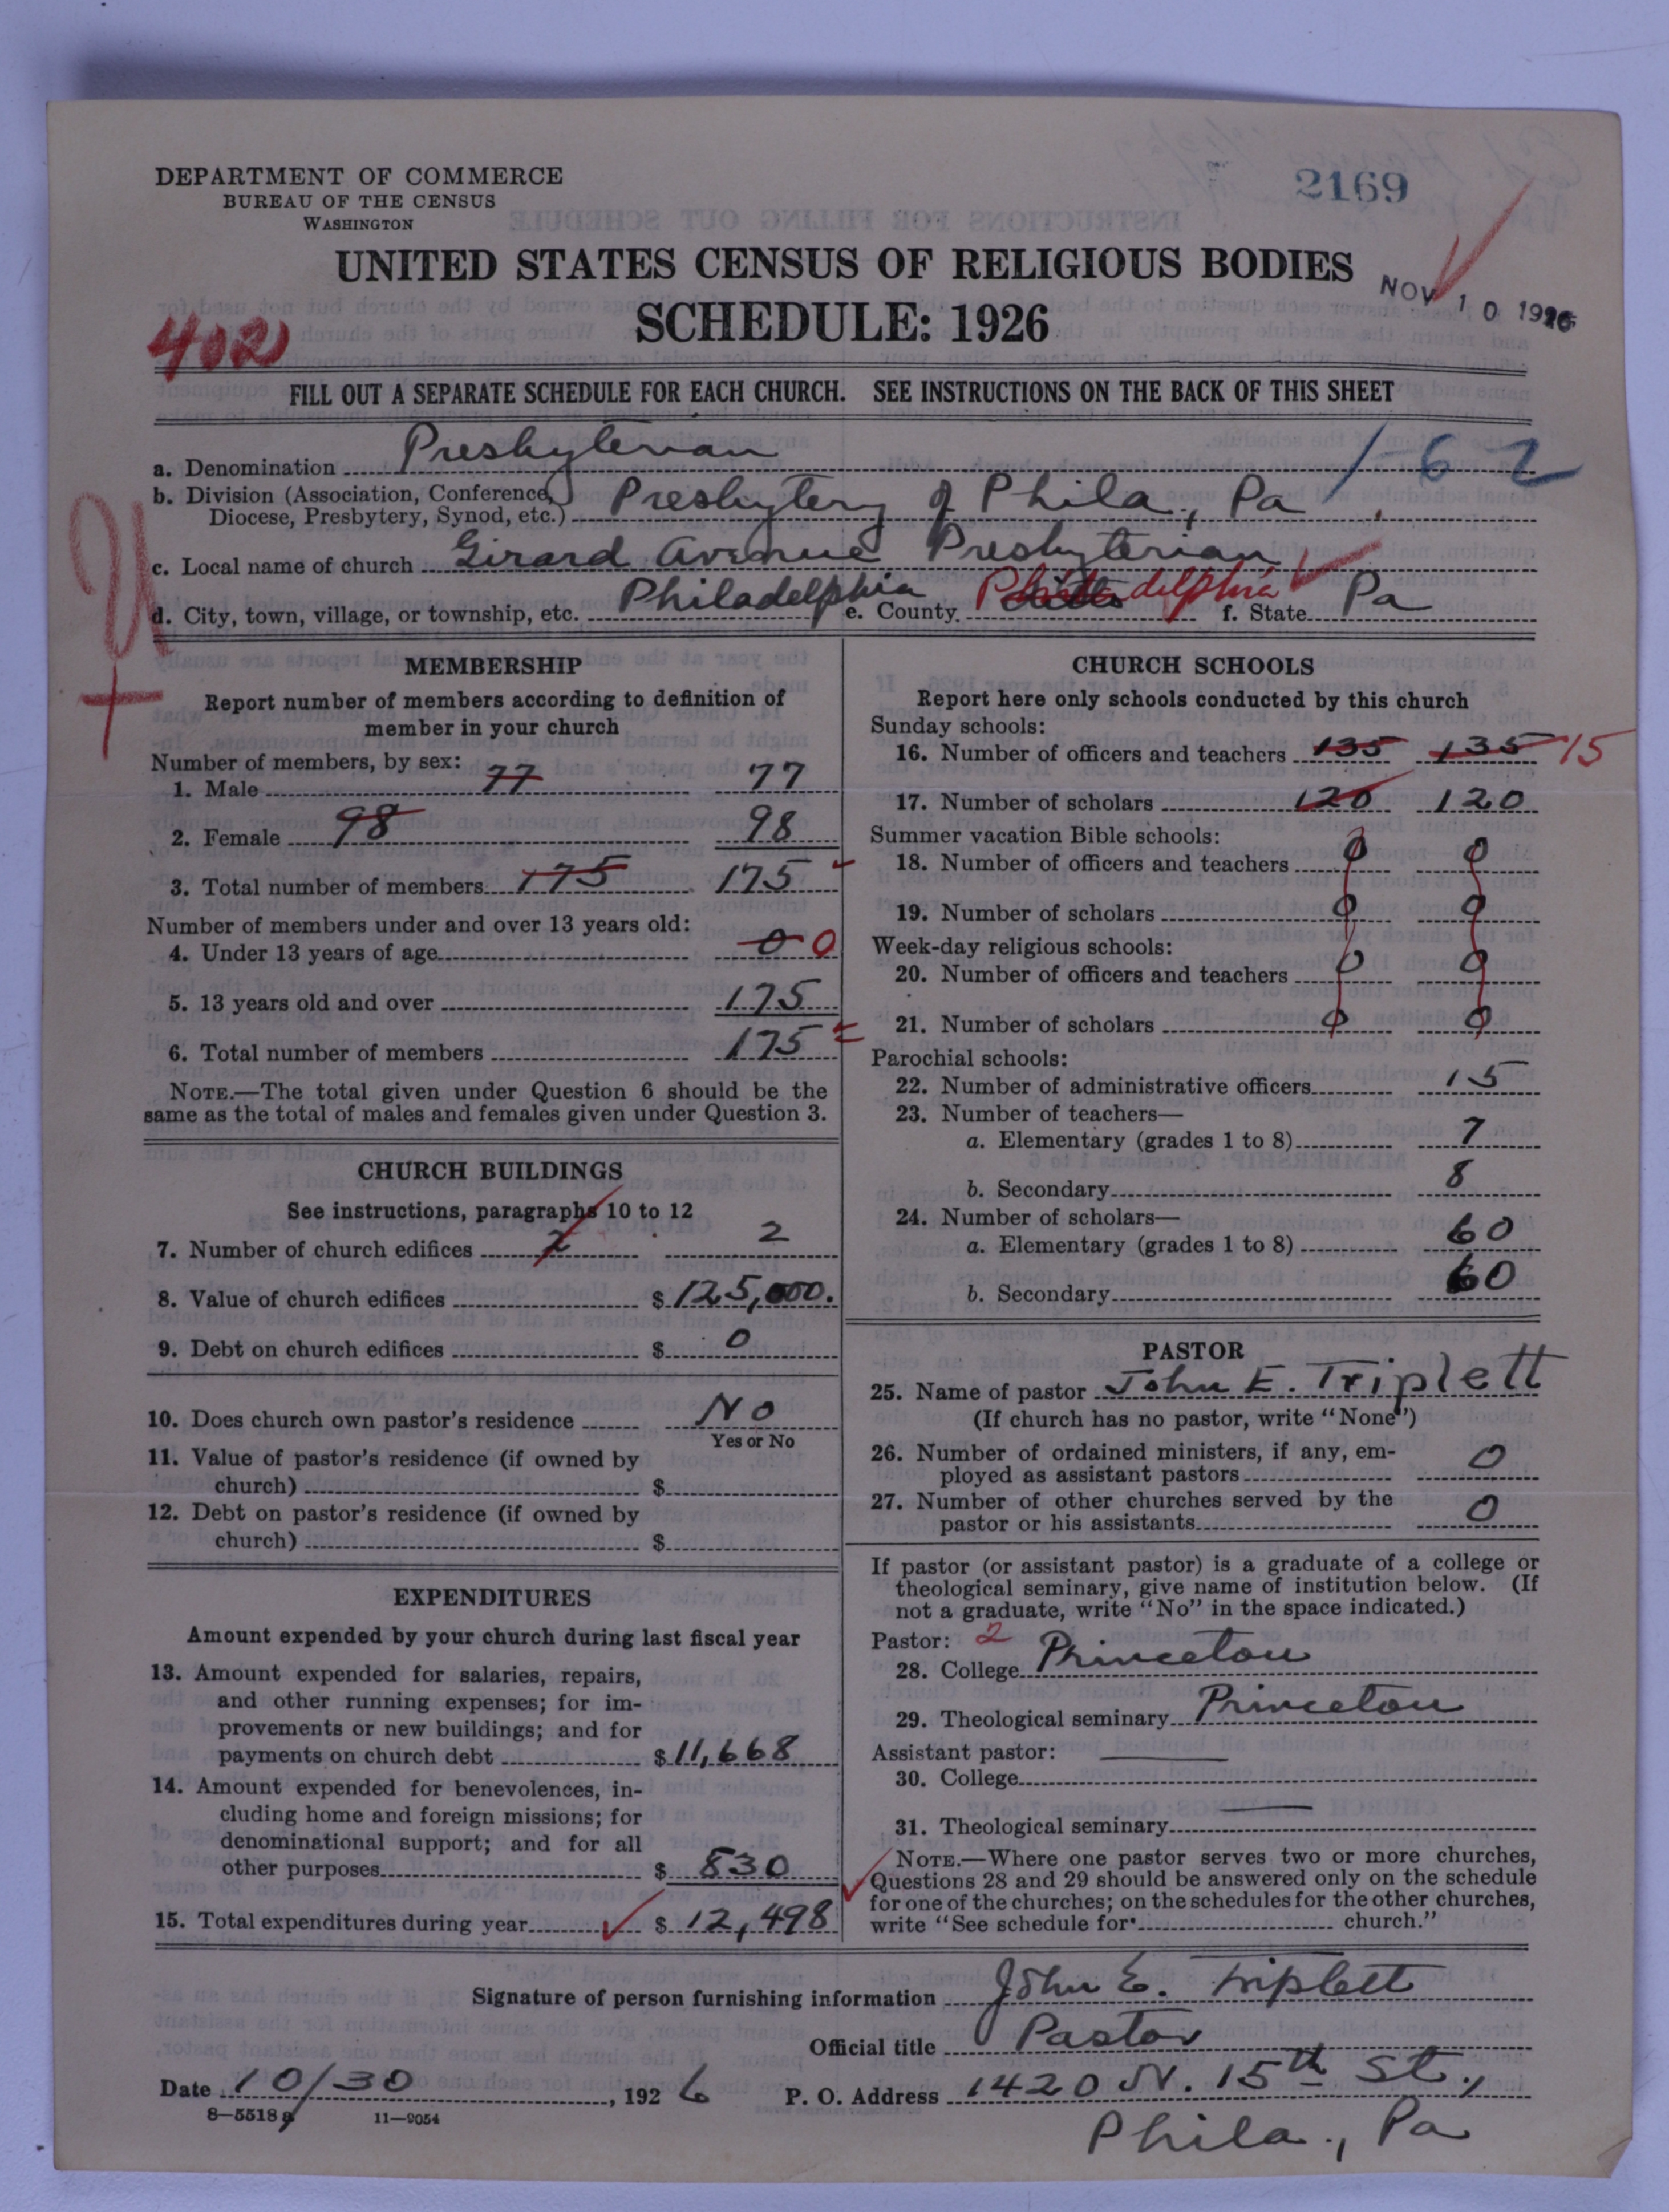 DEPARTMENT OF COMMERCE
BUREAU OF THE CENSUS
WASHINGTON
2169
UNITED STATES CENSUS OF RELIGIOUS BODIES
SCHEDULE: 1926
NOV 10 1926
402
FILL OUT A SEPARATE SCHEDULE FOR EACH CHURCH. SEE INSTRUCTIONS ON THE BACK OF THIS SHEET
a. Denomination Presbyterian 1-62
b. Division (Association, Conference,
Diocese, Presbytery, Synod, etc.) Presbytery of Phila., Pa
c. Local name of church Girard Avenue Presbyterian
d. City, town, village, or township, etc. Philadelphia e. County Philadelphia f. State Pa
U
MEMBERSHIP
Report number of members according to definition of
member in your church
Number of members, by sex:
1. Male 77 77
2. Female 98 98
3. Total number of members 175 175
Number of members under and over 13 years old:
4. Under 13 years of age 0 0
5. 13 years old and over 175
6. Total number of members 175
NOTE.—The total given under Question 6 should be the
same as the total of males and females given under Question 3.
CHURCH BUILDINGS
See instructions, paragraphs 10 to 12
7. Number of church edifices 2 2
8. Value of church edifices $ 125,000.
9. Debt on church edifices $ 0
10. Does church own pastor's residence No
Yes or No
11. Value of pastor's residence (if owned by
church) $
12. Debt on pastor's residence (if owned by
church) $
EXPENDITURES
Amount expended by your church during last fiscal year
13. Amount expended for salaries, repairs,
and other running expenses; for im-
provements or new buildings; and for
payments on church debt $ 11,668
14. Amount expended for benevolences, in-
cluding home and foreign missions; for
denominational support; and for all
other purposes $ 830
15. Total expenditures during year $ 12,498
CHURCH SCHOOLS
Report here only schools conducted by this church
Sunday schools:
16. Number of officers and teachers 135 135 15
17. Number of scholars 120 120
Summer vacation Bible schools:
18. Number of officers and teachers 0 0
19. Number of scholars 0 0
Week-day religious schools:
20. Number of officers and teachers 0 0
21. Number of scholars 0 0
Parochial schools:
22. Number of administrative officers 15
23. Number of teachers—
a. Elementary (grades 1 to 8) 7
b. Secondary 8
24. Number of scholars—
a. Elementary (grades 1 to 8) 60
b. Secondary 60
PASTOR
25. Name of pastor John E. Triplett
(If church has no pastor, write "None")
26. Number of ordained ministers, if any, em-
ployed as assistant pastors 0
27. Number of other churches served by the
pastor or his assistants 0
If pastor (or assistant pastor) is a graduate of a college or
theological seminary, give name of institution below. (If
not a graduate, write "No" in the space indicated.)
Pastor: 2
28. College Princeton
29. Theological seminary Princeton
Assistant pastor:
30. College
31. Theological seminary
NOTE.—Where one pastor serves two or more churches,
Questions 28 and 29 should be answered only on the schedule
for one of the churches; on the schedules for the other churches,
write "See schedule for church."
Signature of person furnishing information John E. Triplett
Official title Pastor
Date 10/30, 1926 P. O. Address 1420 N. 15th St.,
8-5518 a 11-9054
Phila., Pa